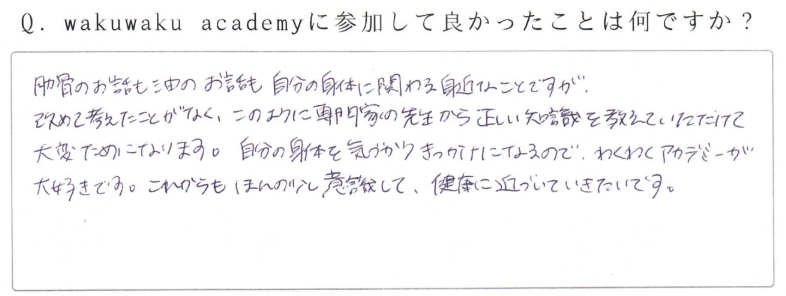 Q. wakuwaku academyに参加して良かったことは何ですか？
肋骨のお話も油のお話も自分の身体に関わる身近なことですが、
改めて考えたことがなく、このように専門家の先生から正しい知識を教えていただけて
大変ためになります。自分の身体を気づかうきっかけになるので、わくわくアカデミーが
大好きです。これからもほんの少し意識して、健康に近づいていきたいです。